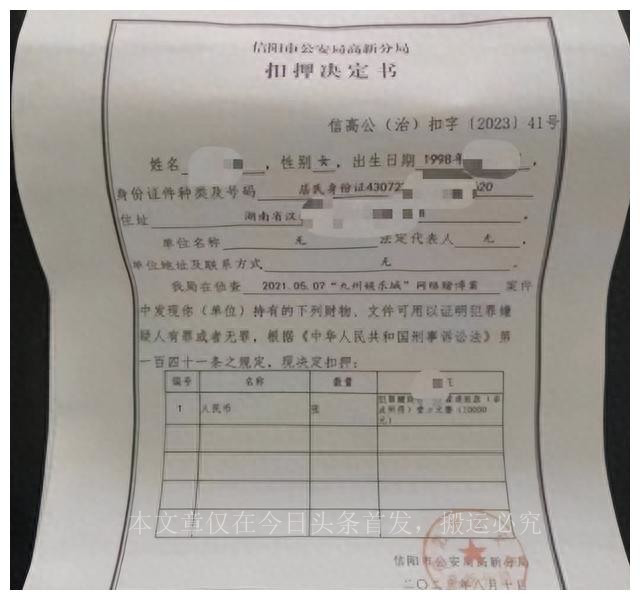 信阳市公安局高新分局
扣押决定书
信高公（治）扣字〔2023〕41号
姓名 ，性别 女 ，出生日期 1998年 ，
身份证件种类及号码 居民身份证43072 20
住址 湖南省汉 。
单位名称 无 法定代表人 无 。
单位地址及联系方式 无 。
我局在侦查 2021.05.07“九州娱乐城”网络赌博案 案件
中发现你（单位）持有的下列财物、文件可用以证明犯罪嫌
疑人有罪或者无罪，根据《中华人民共和国刑事诉讼法》第
一百四十一条之规定，现决定扣押：
编号 名称 数量
1 人民币 张 犯罪嫌疑
（10000
元）
本文章仅在今日头条首发，搬运必究
信阳市公安局高新分局
二〇二 年八月十日